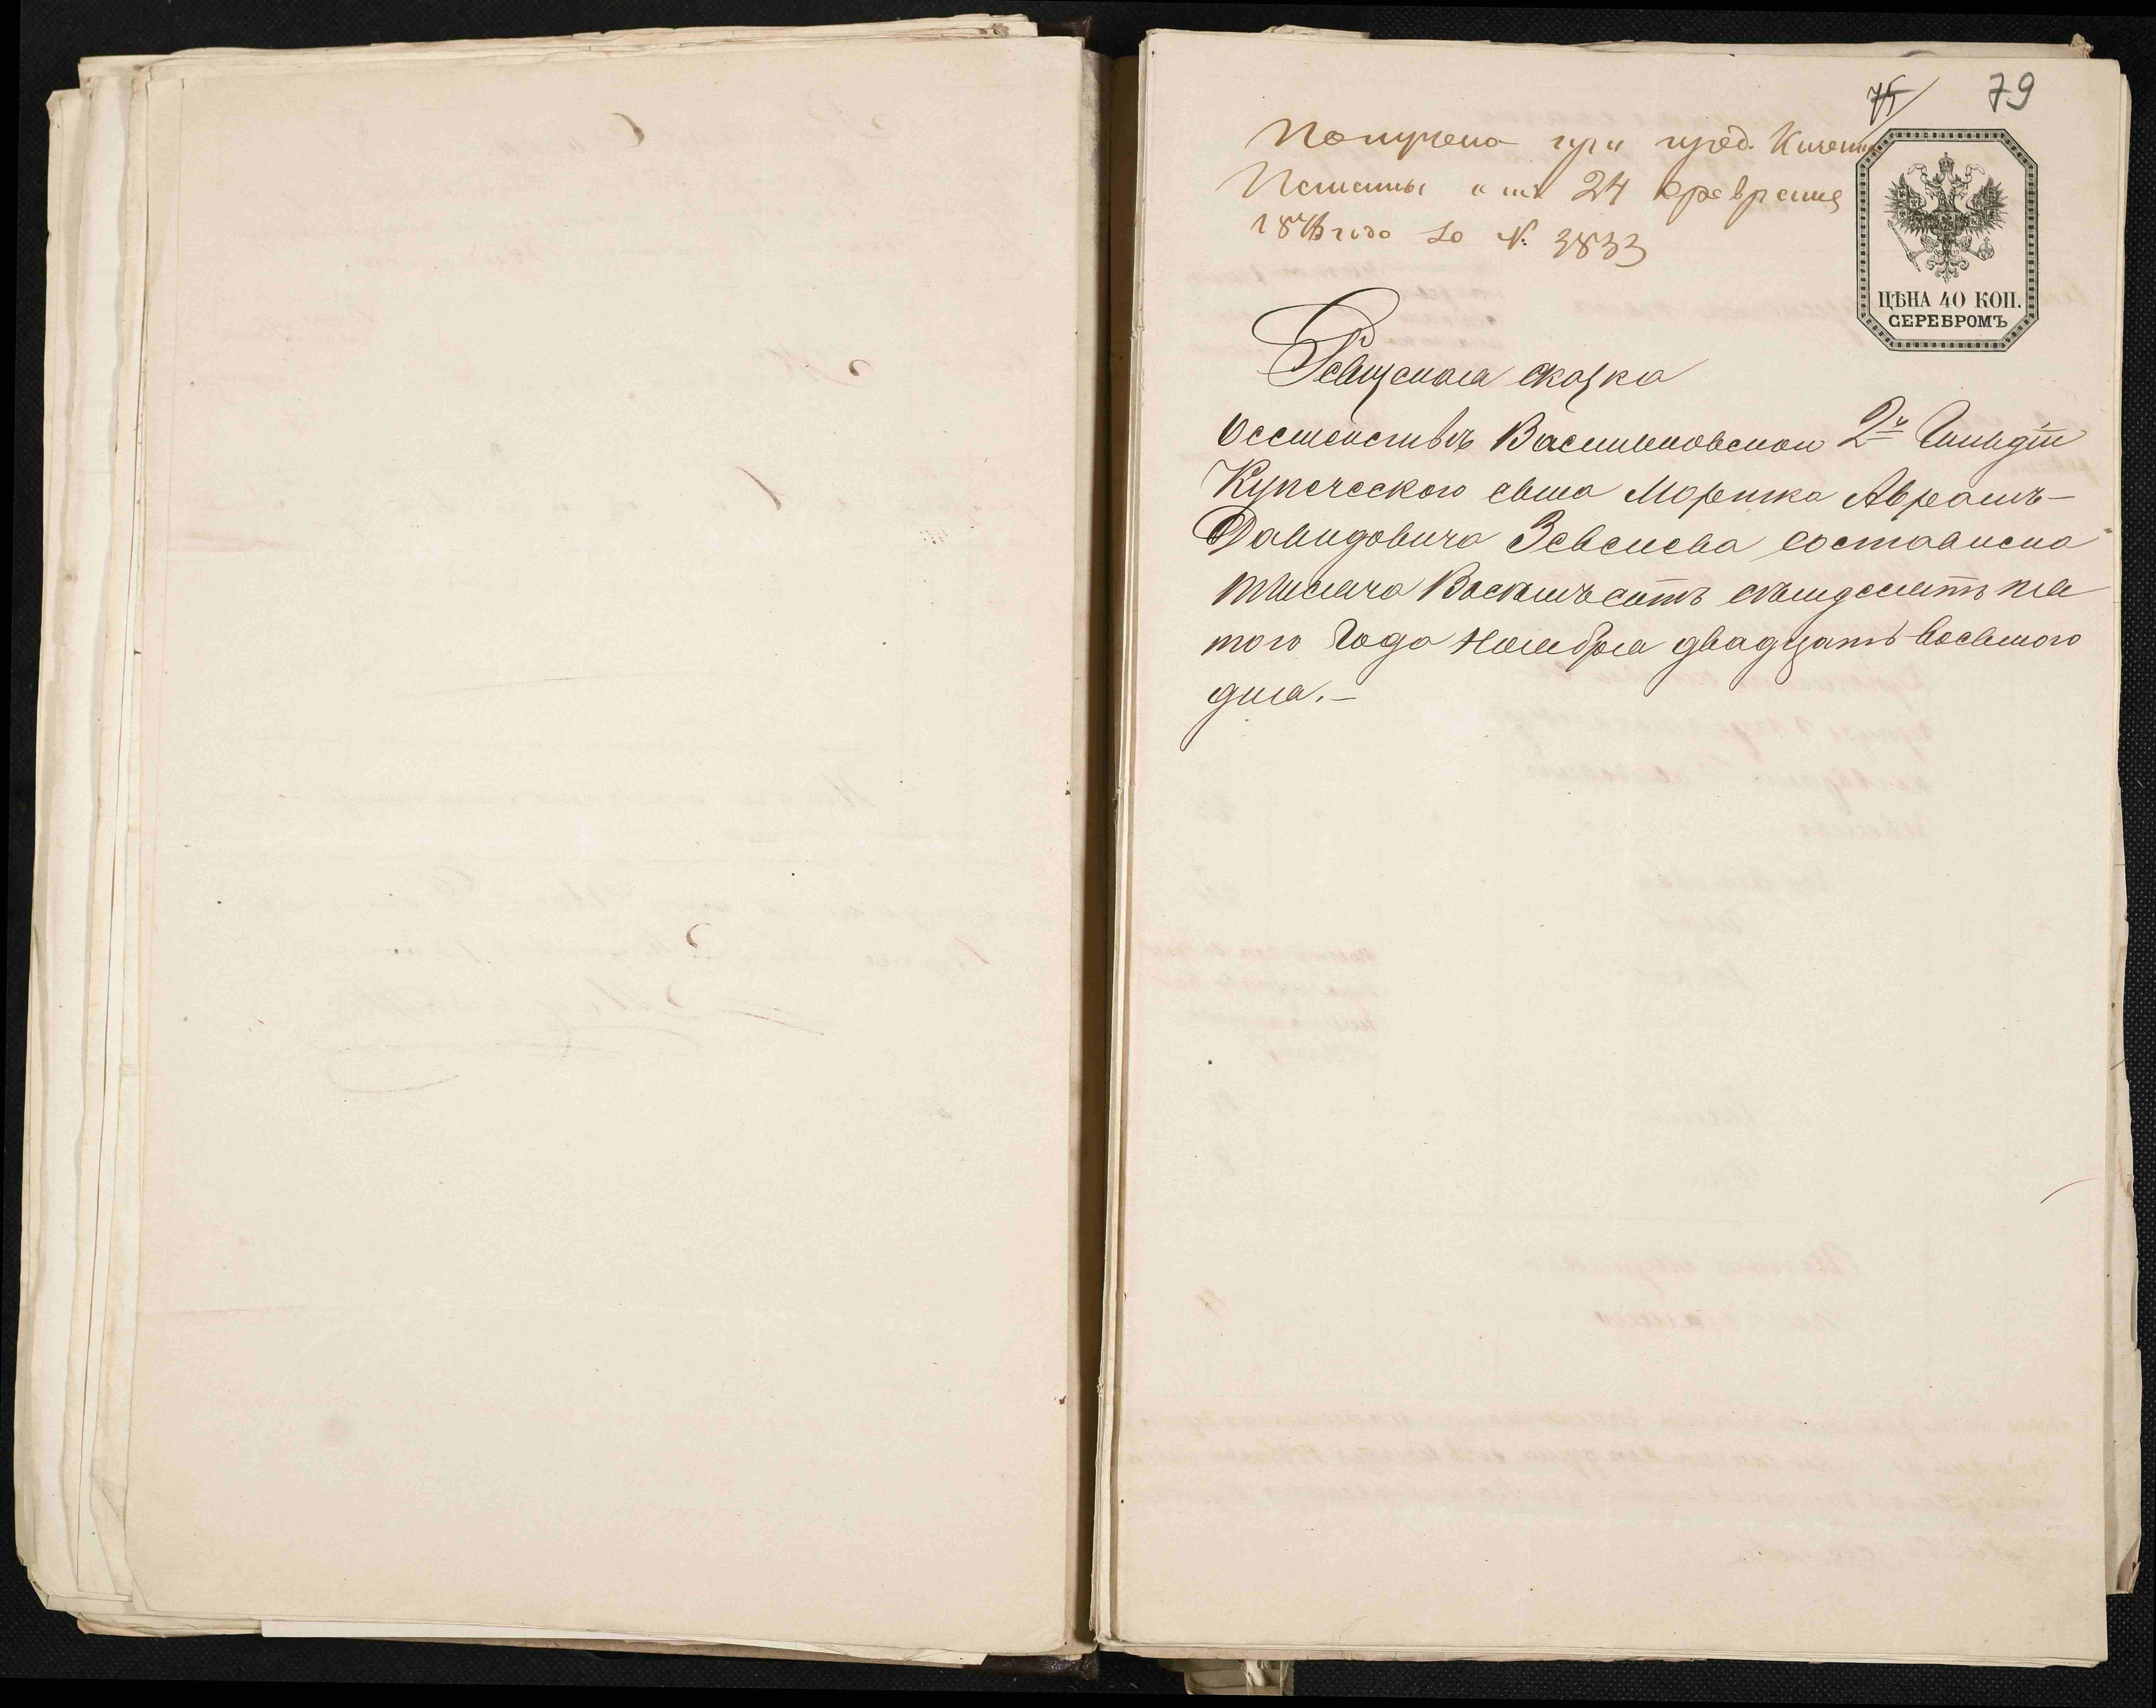 75 79
Получена при пред. Киевск.
Палаты отъ 24 февраля
1876 года за №: 3833
ЦѢНА 40 КОП.
СЕРЕБРОМЪ
Ревизская сказка
о семействѣ Васильковской 2й Гильдіи
Купеческого сына Моритка Аврамъ-
Давидовича Зевелева составлена
тысяча Восемьсотъ семдесятъ пя
того Года Ноября двадцать восьмого
дня.—